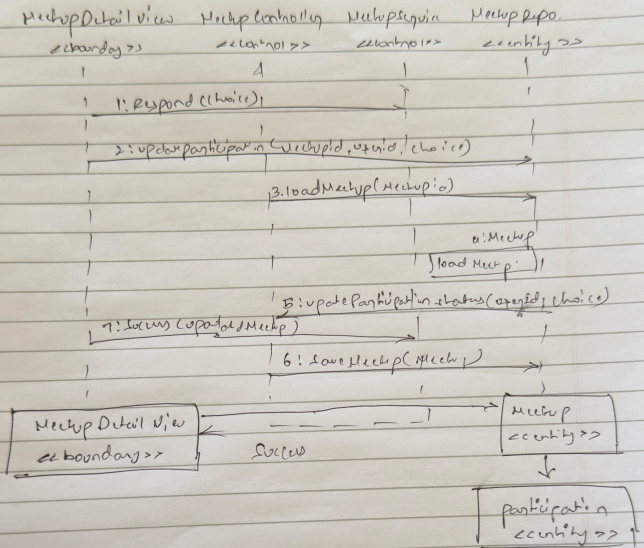 MeetupDetailView MeetupController MeetupService MeetupRepo.
<<boundary>> <<control>> <<control>> <<entity>>
1: Respond (choice)
2: updateparticipation (Meetupid, userid, choice)
3. loadMeetup (Meetupid)
4: Meetup
load Meetup
5: updateParticipation status (userid, choice)
7: Success (updated Meetup)
6: SaveMeetup (Meetup)
MeetupDetail View
<<boundary>>
Success
Meetup
<<entity>>
participation
<<entity>>